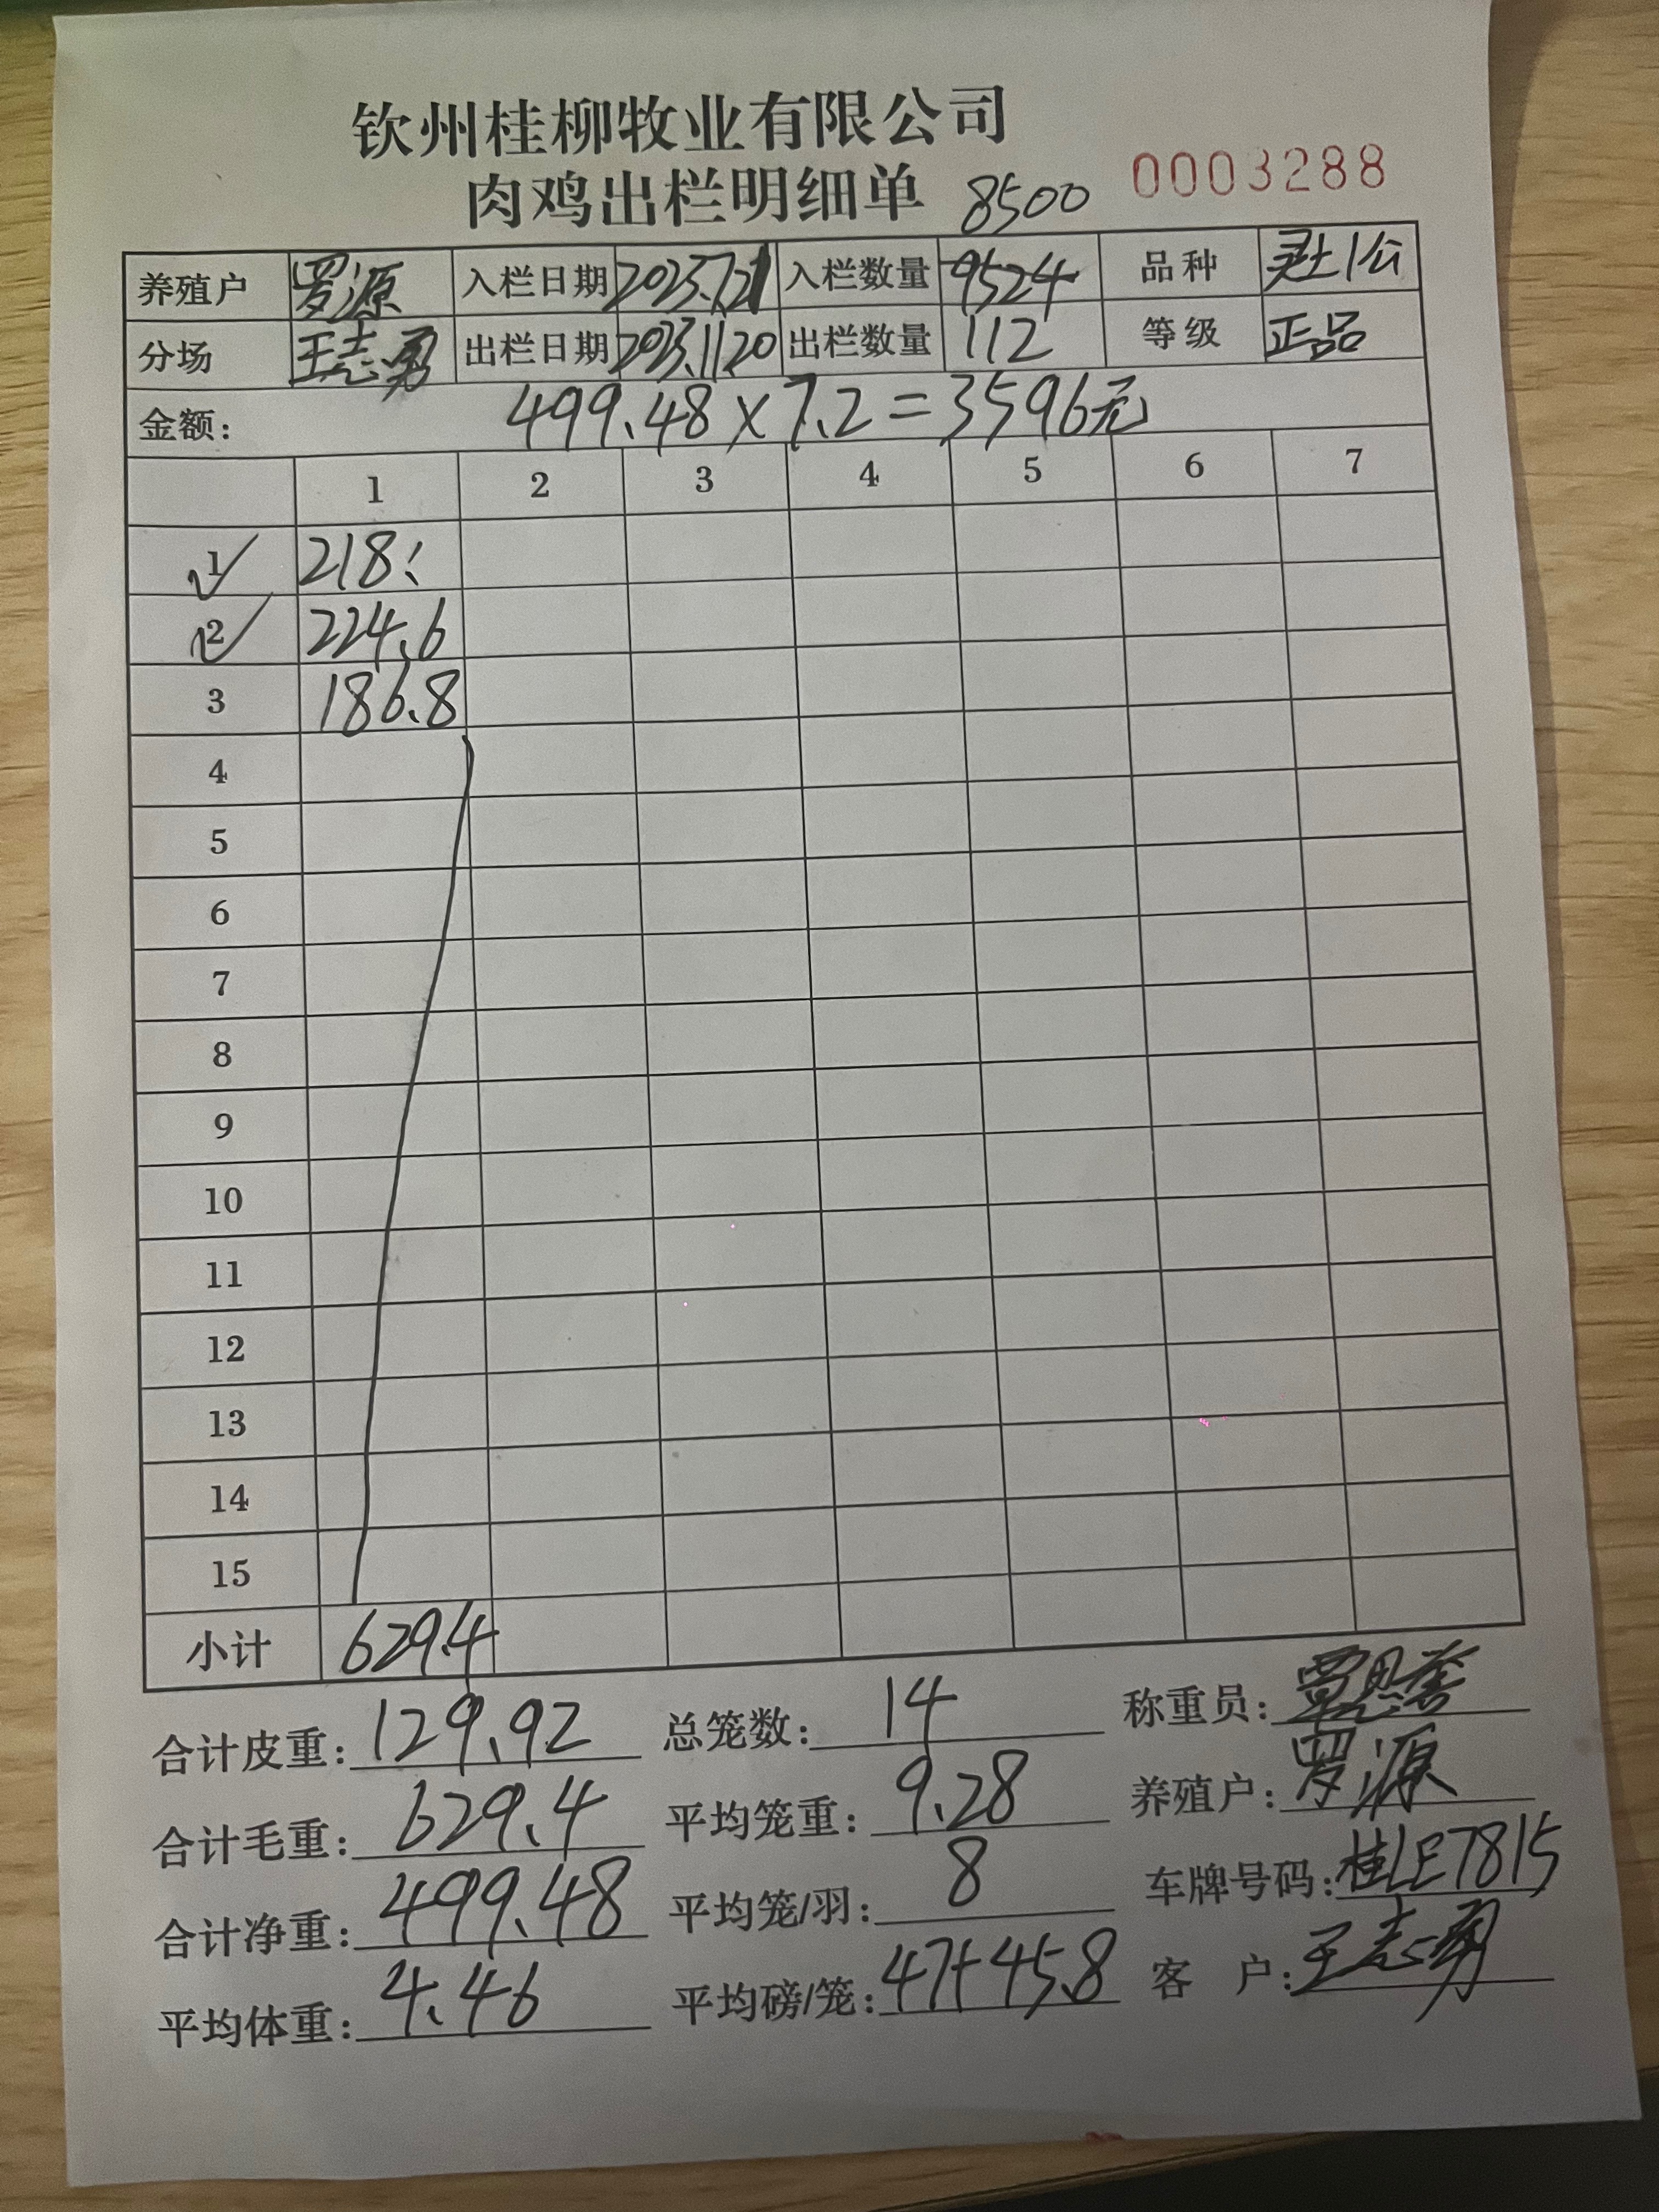 钦州桂柳牧业有限公司
肉鸡出栏明细单 8500 0003288
养殖户 罗源 入栏日期 2023.7.21 入栏数量 9524 品种 灵土1公
分场 王志勇 出栏日期 2023.11.20 出栏数量 112 等级 正品
金额: 499.48×7.2=3596元
1 2 3 4 5 6 7
1 218.
2 224.6
3 186.8
4
5
6
7
8
9
10
11
12
13
14
15
小计 629.4
合计皮重: 129.92 总笼数: 14 称重员:
合计毛重: 629.4 平均笼重: 9.28 养殖户: 罗源
合计净重: 499.48 平均笼/羽: 8 车牌号码: 桂LE7815
平均体重: 4.46 平均磅/笼: 47+45.8 客 户: 王志勇